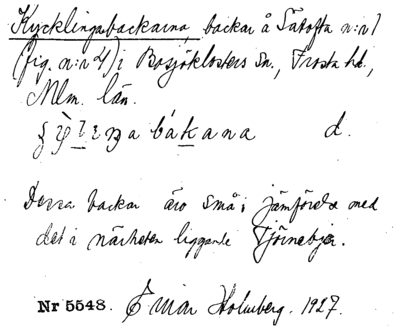 Kycklingabackarna, backar å Sätofta n:r 1
(fig. n:r 4) i Bosjöklosters sn., Frosta hd.,
Mlm. län.
bákana d.
Dessa backar äro små i jämförelse med
det i närheten liggande Tjörnebjär.
Nr 5548. Einar Holmberg. 1927.